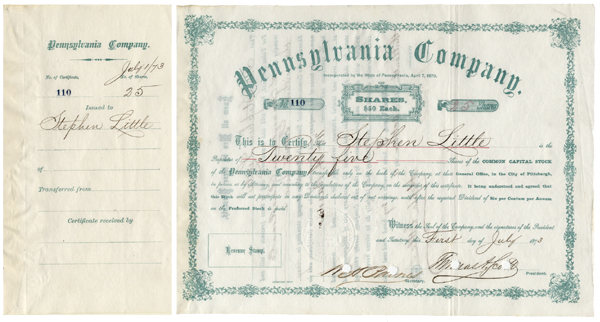 Pennsylvania Company.
July 1/73
No. of Certificate, No. of Shares,
110 25
Issued to
Stephen Little
of
Transferred from
Certificate received by
Pennsylvania Company.
Incorporated by the State of Pennsylvania, April 7, 1870.
No 110
SHARES,
$50 Each.
25 Shares
This is to Certify that Stephen Little is the
Proprietor of Twenty five Shares of the COMMON CAPITAL STOCK
of the Pennsylvania Company, transferable only on the books of the Company, at their General Office, in the City of Pittsburgh,
in person or by attorney, and according to the regulations of the Company, on the surrender of this certificate. It being understood and agreed that
this Stock will not participate in any Dividends declared out of net earnings, until after the required Dividend of Six per Centum per Annum
on the Preferred Stock is paid.
Witness the Seal of the Company, and the signatures of the President
and Secretary, this First day of July 1873
Revenue Stamp.
Secretary.
President.